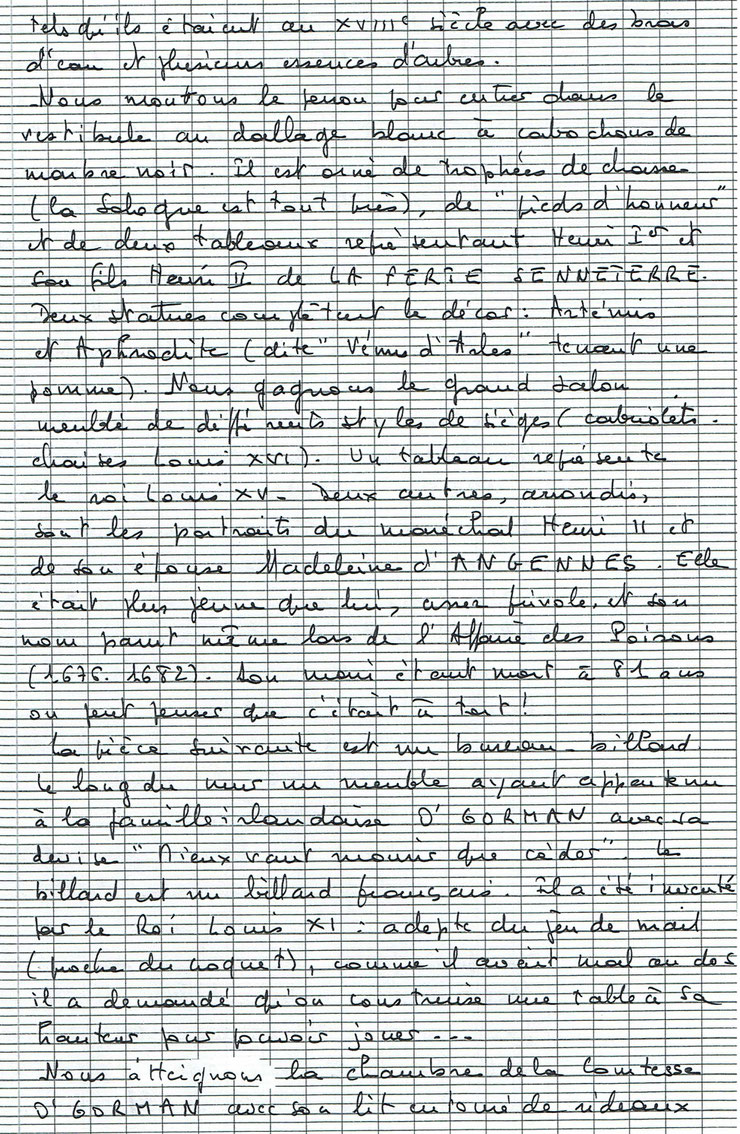 tels qu'ils étaient au XVIIIe siècle avec des bras
d'eau et plusieurs essences d'arbres.
Nous montons le perron pour entrer dans le
vestibule au dallage blanc à cabochons de
marbre noir. Il est orné de trophées de chasse
(la Sologne est tout près), de "pieds d'honneur"
et de deux tableaux représentant Henri Ier et
son fils Henri II de LA FERTE SENNETERRE.
Deux statues complètent le décor : Artémis
et Aphrodite (dite "Vénus d'Arles" tenant une
pomme). Nous gagnons le grand salon
meublé de différents styles de sièges (cabriolets.
chaises Louis XVI). Un tableau représente
le roi Louis XV - Deux autres, arrondis,
sont les portraits du maréchal Henri II et
de son épouse Madeleine d'ANGENNES. Elle
était plus jeune que lui, assez frivole, et son
nom parut même lors de l'Affaire des Poisons
(1676. 1682). Son mari étant mort à 81 ans
on peut penser que c'était à tort !
La pièce suivante est un bureau - billard.
Le long du mur un meuble ayant appartenu
à la famille irlandaise O'GORMAN avec sa
devise "Mieux vaut mourir que céder". Le
billard est un billard français. Il a été inventé
par le Roi Louis XI : adepte du jeu de mail
(proche du croquet), comme il avait mal au dos
il a demandé qu'on construise une table à sa
hauteur pour pouvoir jouer ---
Nous atteignons la chambre de la Comtesse
O'GORMAN avec son lit entouré de rideaux